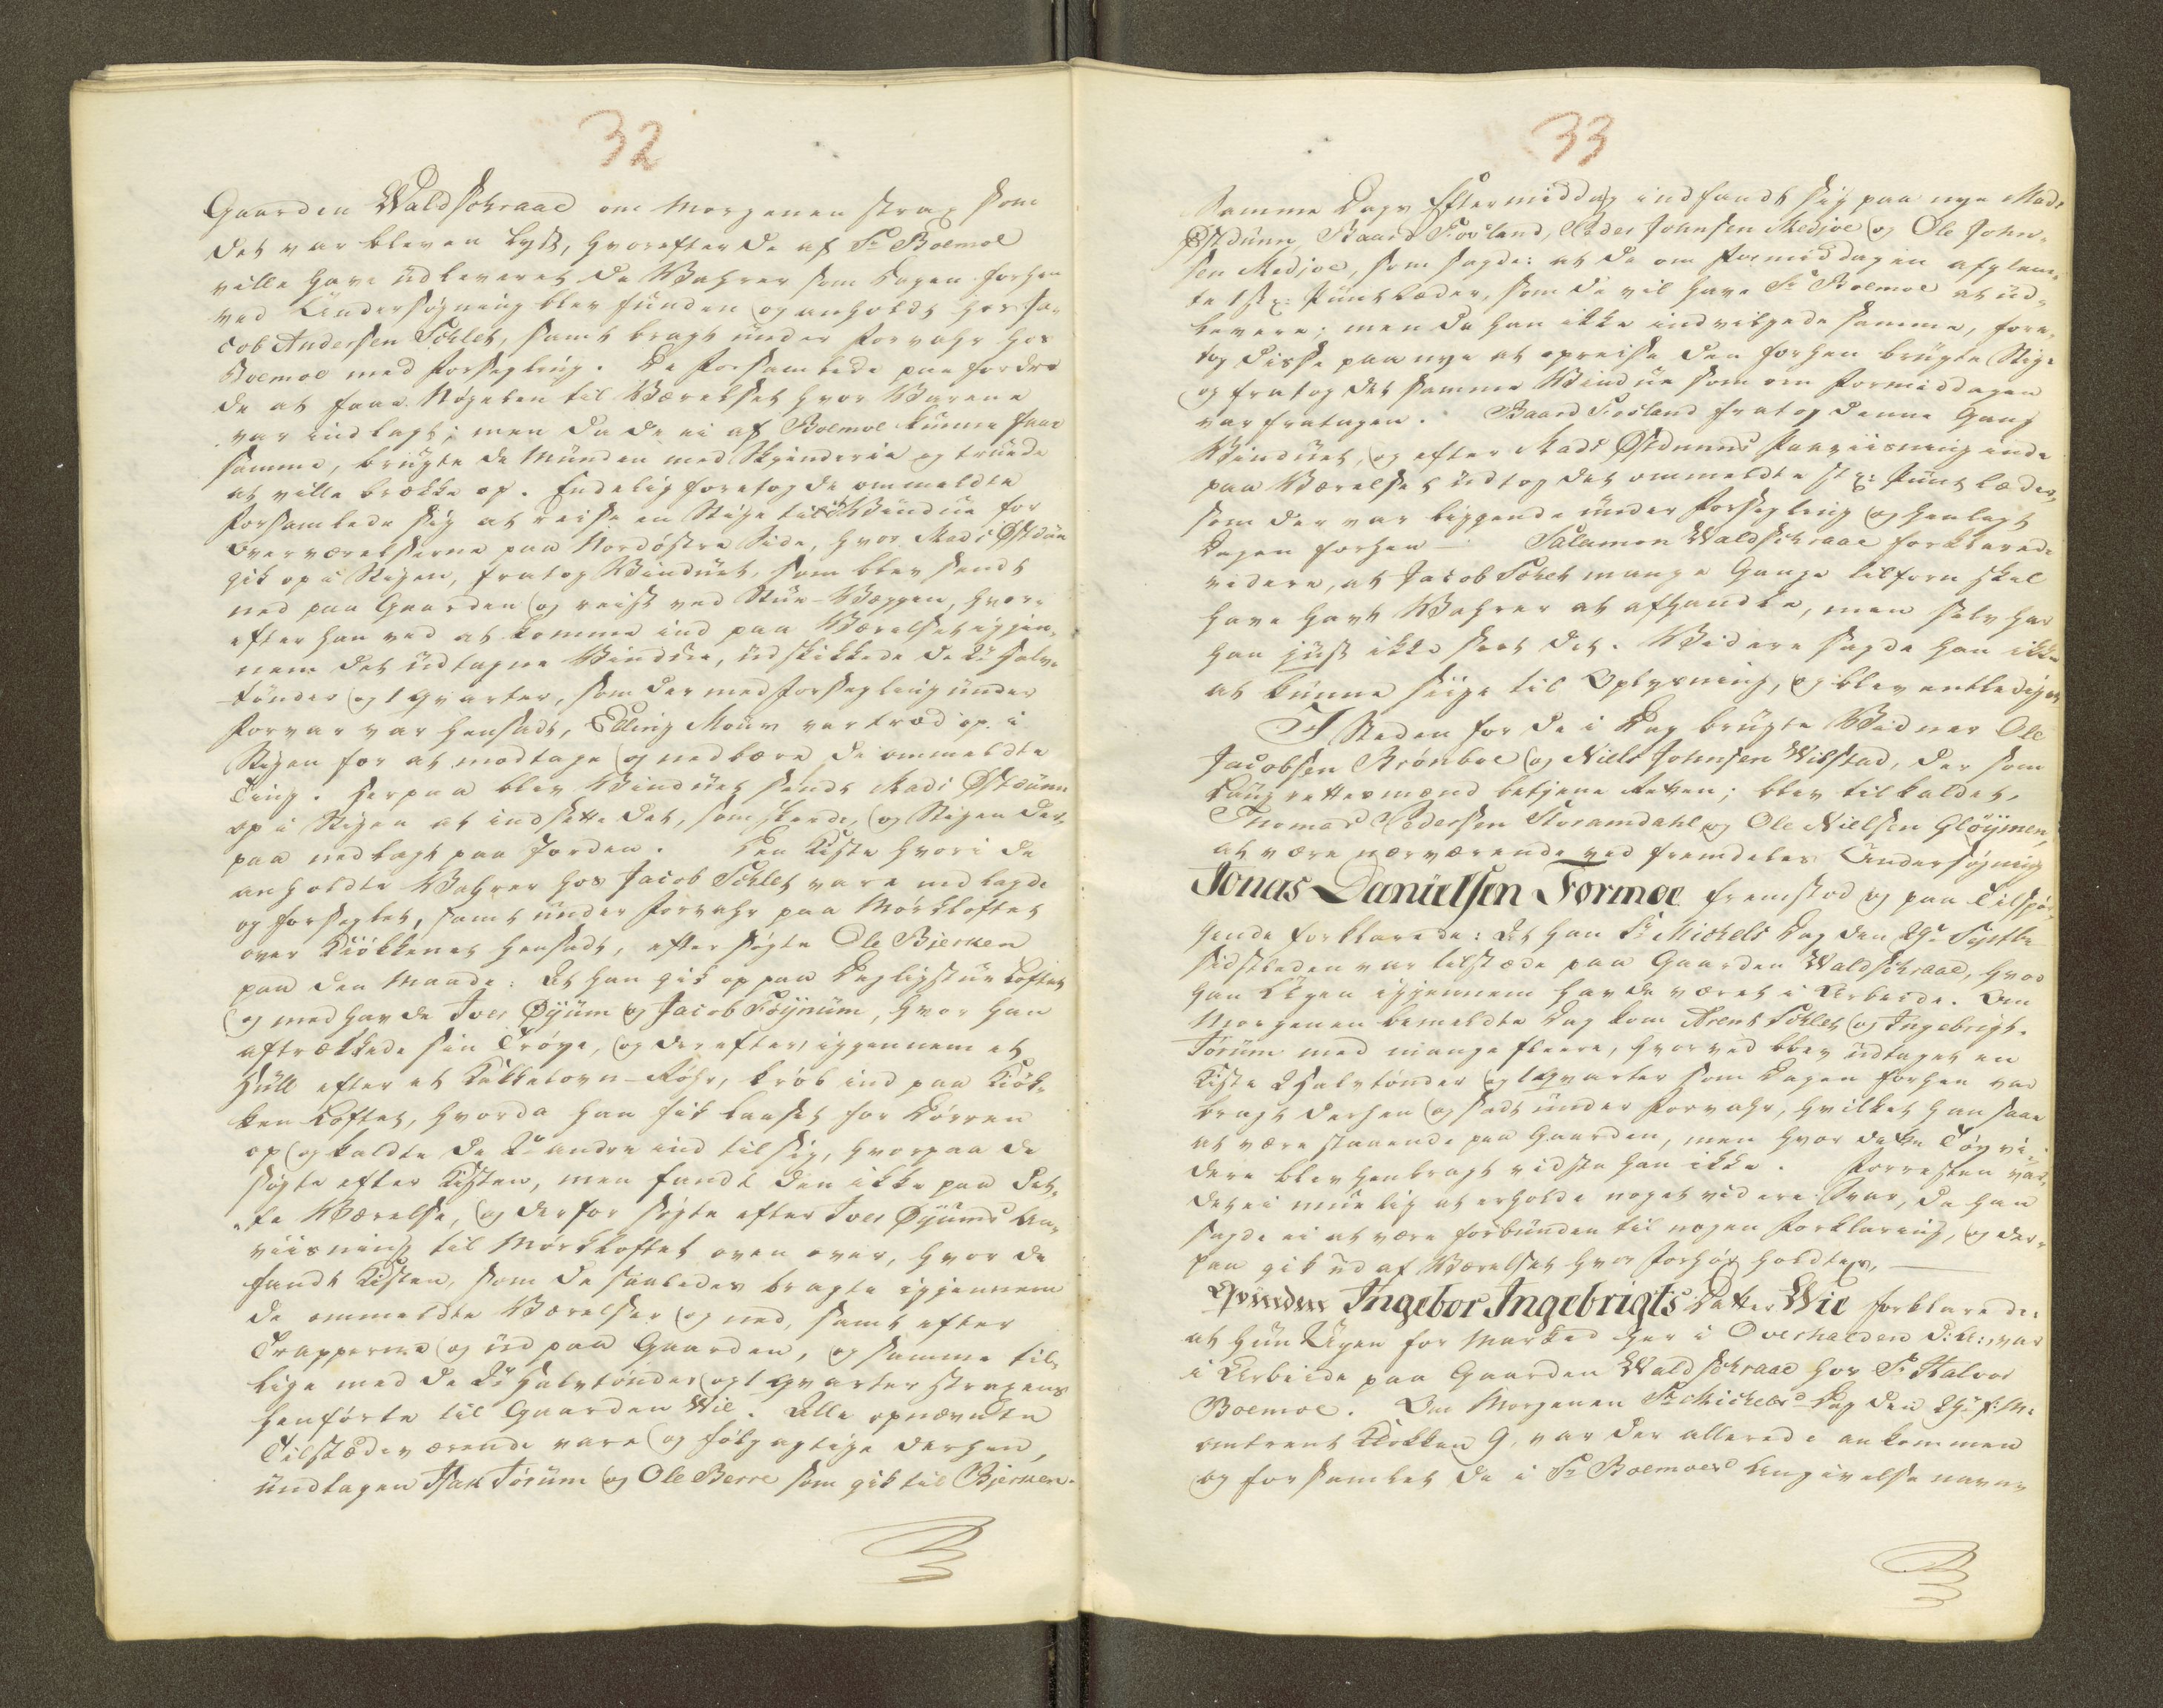 32
Gaarden Waldschraae om Morgenen strax som
det var bleven lyst, hvorefter de af Sr Boemoe
ville have üdleveret de Wahrer som Dagen forhen
ved Ündersøgning blev fünden og anholdt hos Ja-
cob Andersen Schlet, samt bragt ünder Forvahr hos
Boemoe med Forsegling. De Forsamlede paafordre-
de at faae Nøgelen til Værelset hvor Varene
var indlagt; men da de ei af Boemoe kunne faae
samme, brügte de Münden med Skjenderie og truede
at ville brække op. Endelig foretog de ommeldte
Forsamlede sig at reise en Stige til et Vindue for
Overværelserne paa Nordøstre Side, hvor Mads Østdün
gik op i Stigen, fratog Windüet, som blev sendt
ned paa Gaarden og reist ved Stüe-Væggen, hvor-
efter han ved at komme ind paa Værelset igjen-
nem det üdtagne Windüe, üdskikkede de 2de halve
Tønder og 1 Qvarter, som der med Forsegling ünder
Forvar var hensadt, Elling Mouw var træd op i
Stigen for at modtage og nedbære de ommeldte
Ting. Herpaa blev Windüet sendt Mads Østdünn
op i Stigen at indsætte det, som skeede, og Stigen der-
paa nedlagt paa Jorden. Den Kiste hvori de
anholdte Wahrer hos Jacob Schlet vare nedlagde
og forseglet, samt ünder Forvahr paa Mørkloftet
over Kiøkkenet hensadt, eftersøgte Ole Bjerken
paa den Maade: At han gik op paa Dagligstue Loftet
og med havde Iver Øyüm og Jacob Föynüm, hvor han
aftrækkede sin Trøye, og derefter, igjennem et
Hüll efter et Kakkelovn-Røhr, krøb ind paa Kiøk-
ken Loftet, hvorda han fik Laaset for Dørren
op og kaldte de 2de andre ind til sig, hvorpaa de
søgte efter Kisten, men fandt den ikke paa det-
te Værelse, og derfor søgte efter Iver Øyüms An-
viisning til Mørkloftet oven over, hvor de
fandt Kisten, som de saaledes bragte igjennem
de ommeldte Værelser og ned, samt efter
Trapperne og üd paa Gaarden, og samme til-
lige med de 2de Halvtønder og 1 Qvarter straxens
henførte til Gaarden Wie. Alle opnævnte
Tilstædeværende vare og følgagtige derhen,
undtagen Isak Törüm og Ole Berre som gik til Bjerken.
33
Samme Dags Eftermiddag indfandt sig paa nye Mads
Østdünn, Baard Fosland, Peder Johnsen Medjoe og Ole John-
sen Medjoe, som sagde: at de om Formiddagen afglem-
te 1 st. Pünt Læder, som de vil have Sr Boemoe at üd-
levere; men da han ikke indvilgede samme, fore-
tog disse paa nye at opreise den forhen brügte Stige
og fratog det samme Windüe som om Formiddagen
var fratagen. Baard Fosland fratog denne Gang
Windüet, og efter Mads Østdunns Paaviisning inde
paa Værelset üdtog det ommeldte st. Pünt Læder,
som der var liggende ünder Forsegling og henlagt
Dagen forhen — Salamon Waldschraae forklarede
videre, at Jacob Schlet mange Gange tilforn skal
have havt Wahrer at afhandle, men selv har
han jüst ikke seet det. Widere sagde han ikke
at künne siige til Oplysning, og blev entlediget
I Steden for de i Dag brügte Widner Ole
Jacobsen Brønboe og Niels Johnsen Wibstad, der som
Laugrettesmænd betjene Retten; blev tilkaldet,
Thomas Pedersen Floramdahl og Ole Nielsen Gløymen,
at være nærværende ved fremdeles Ündersøgning
Jonas Danielsen Formoe fremstod og paa Tilspør-
gende forklarede: At han St Michels Dag den 29de Septbr
sidstleden var tilstæde paa Gaarden Waldschraae, hvor
han Ugen igjennem havde været i Arbeide. Om
Morgenen bemeldte Dag kom Arent Schlet og Ingebrigt
Törüm med mange fleere, hvorved blev üdtaget en
Kiste 2 Halvtønder og 1 Qvarter som Dagen forhen var
bragt derhen og sadt ünder Forvahr, hvilket han saae
at være staaende paa Gaarden, men hvor dette Tøy vi-
dere blev henbragt vidste han ikke. Forresten var
det ei muelig at erholde noget videre Svar, da han
sagde ei at være forbünden til nogen Forklaring, og der-
paa gik üd af Værelset hvor Forhør holdtes. —
Qvinden Ingebor Ingebrigts Datter Wie forklarede:
at hün Ugen for Marked her i Overhalden d: A: var
i Arbeide paa Gaarden Waldschraae hos Sr Halvor
Boemoe. Om Morgenen St Michels Dag den 29de f: M:
omtrent Klokken 9, var der allerede ankommen
og forsamlet de i Sr Boemoes Angivelse navne